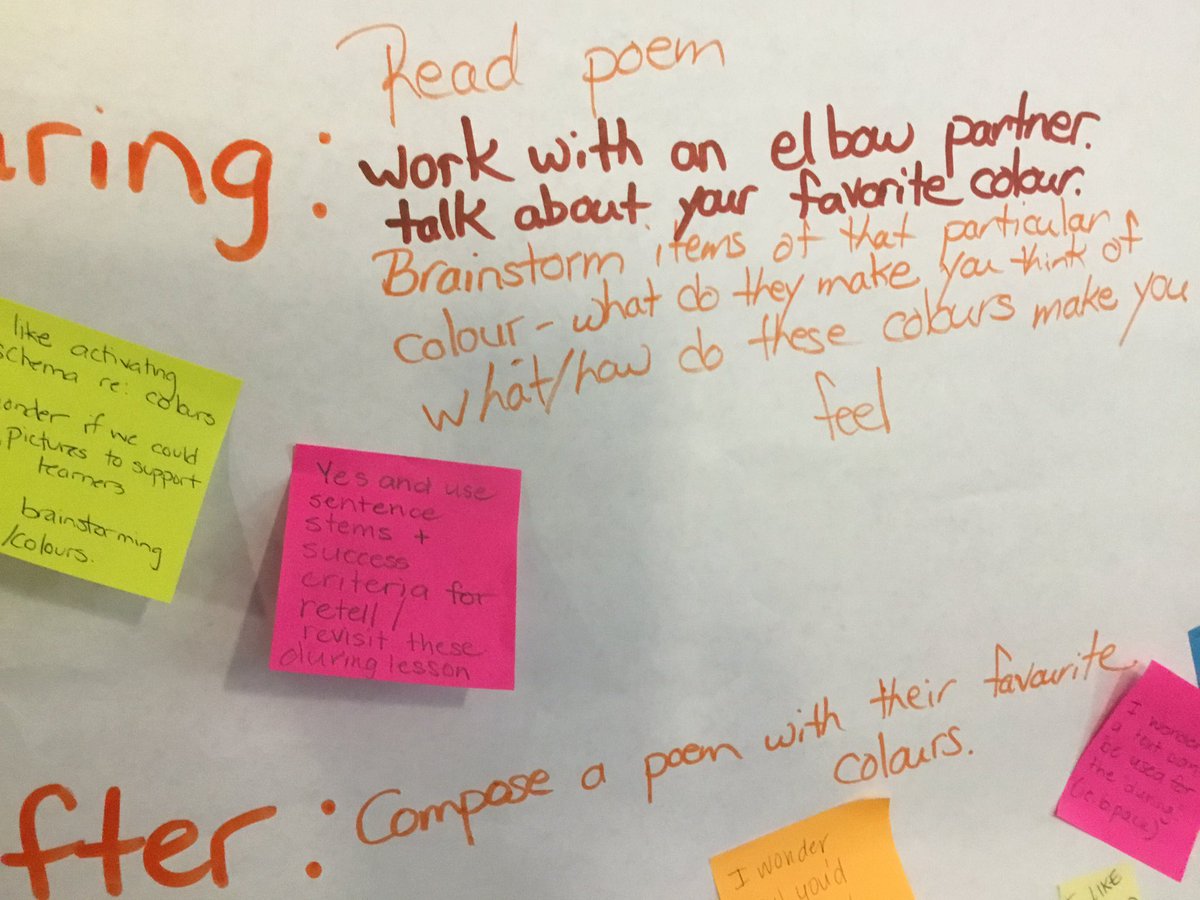 Read poem
uring :
work with an elbow partner.
talk about your favorite colour.
Brainstorm items of that particular
colour - what do they make you think of
what/how do these colours make you
feel
like activating
schema re: colours
onder if we could
pictures to support
learners
brainstorming
/colours.
Yes and use
sentence
stems +
success
criteria for
retell /
revisit these
during lesson
fter :
Compose a poem with their favourite
colours.
I wonder
a text can
be used for
the during
I wonder
you'd
LIKE